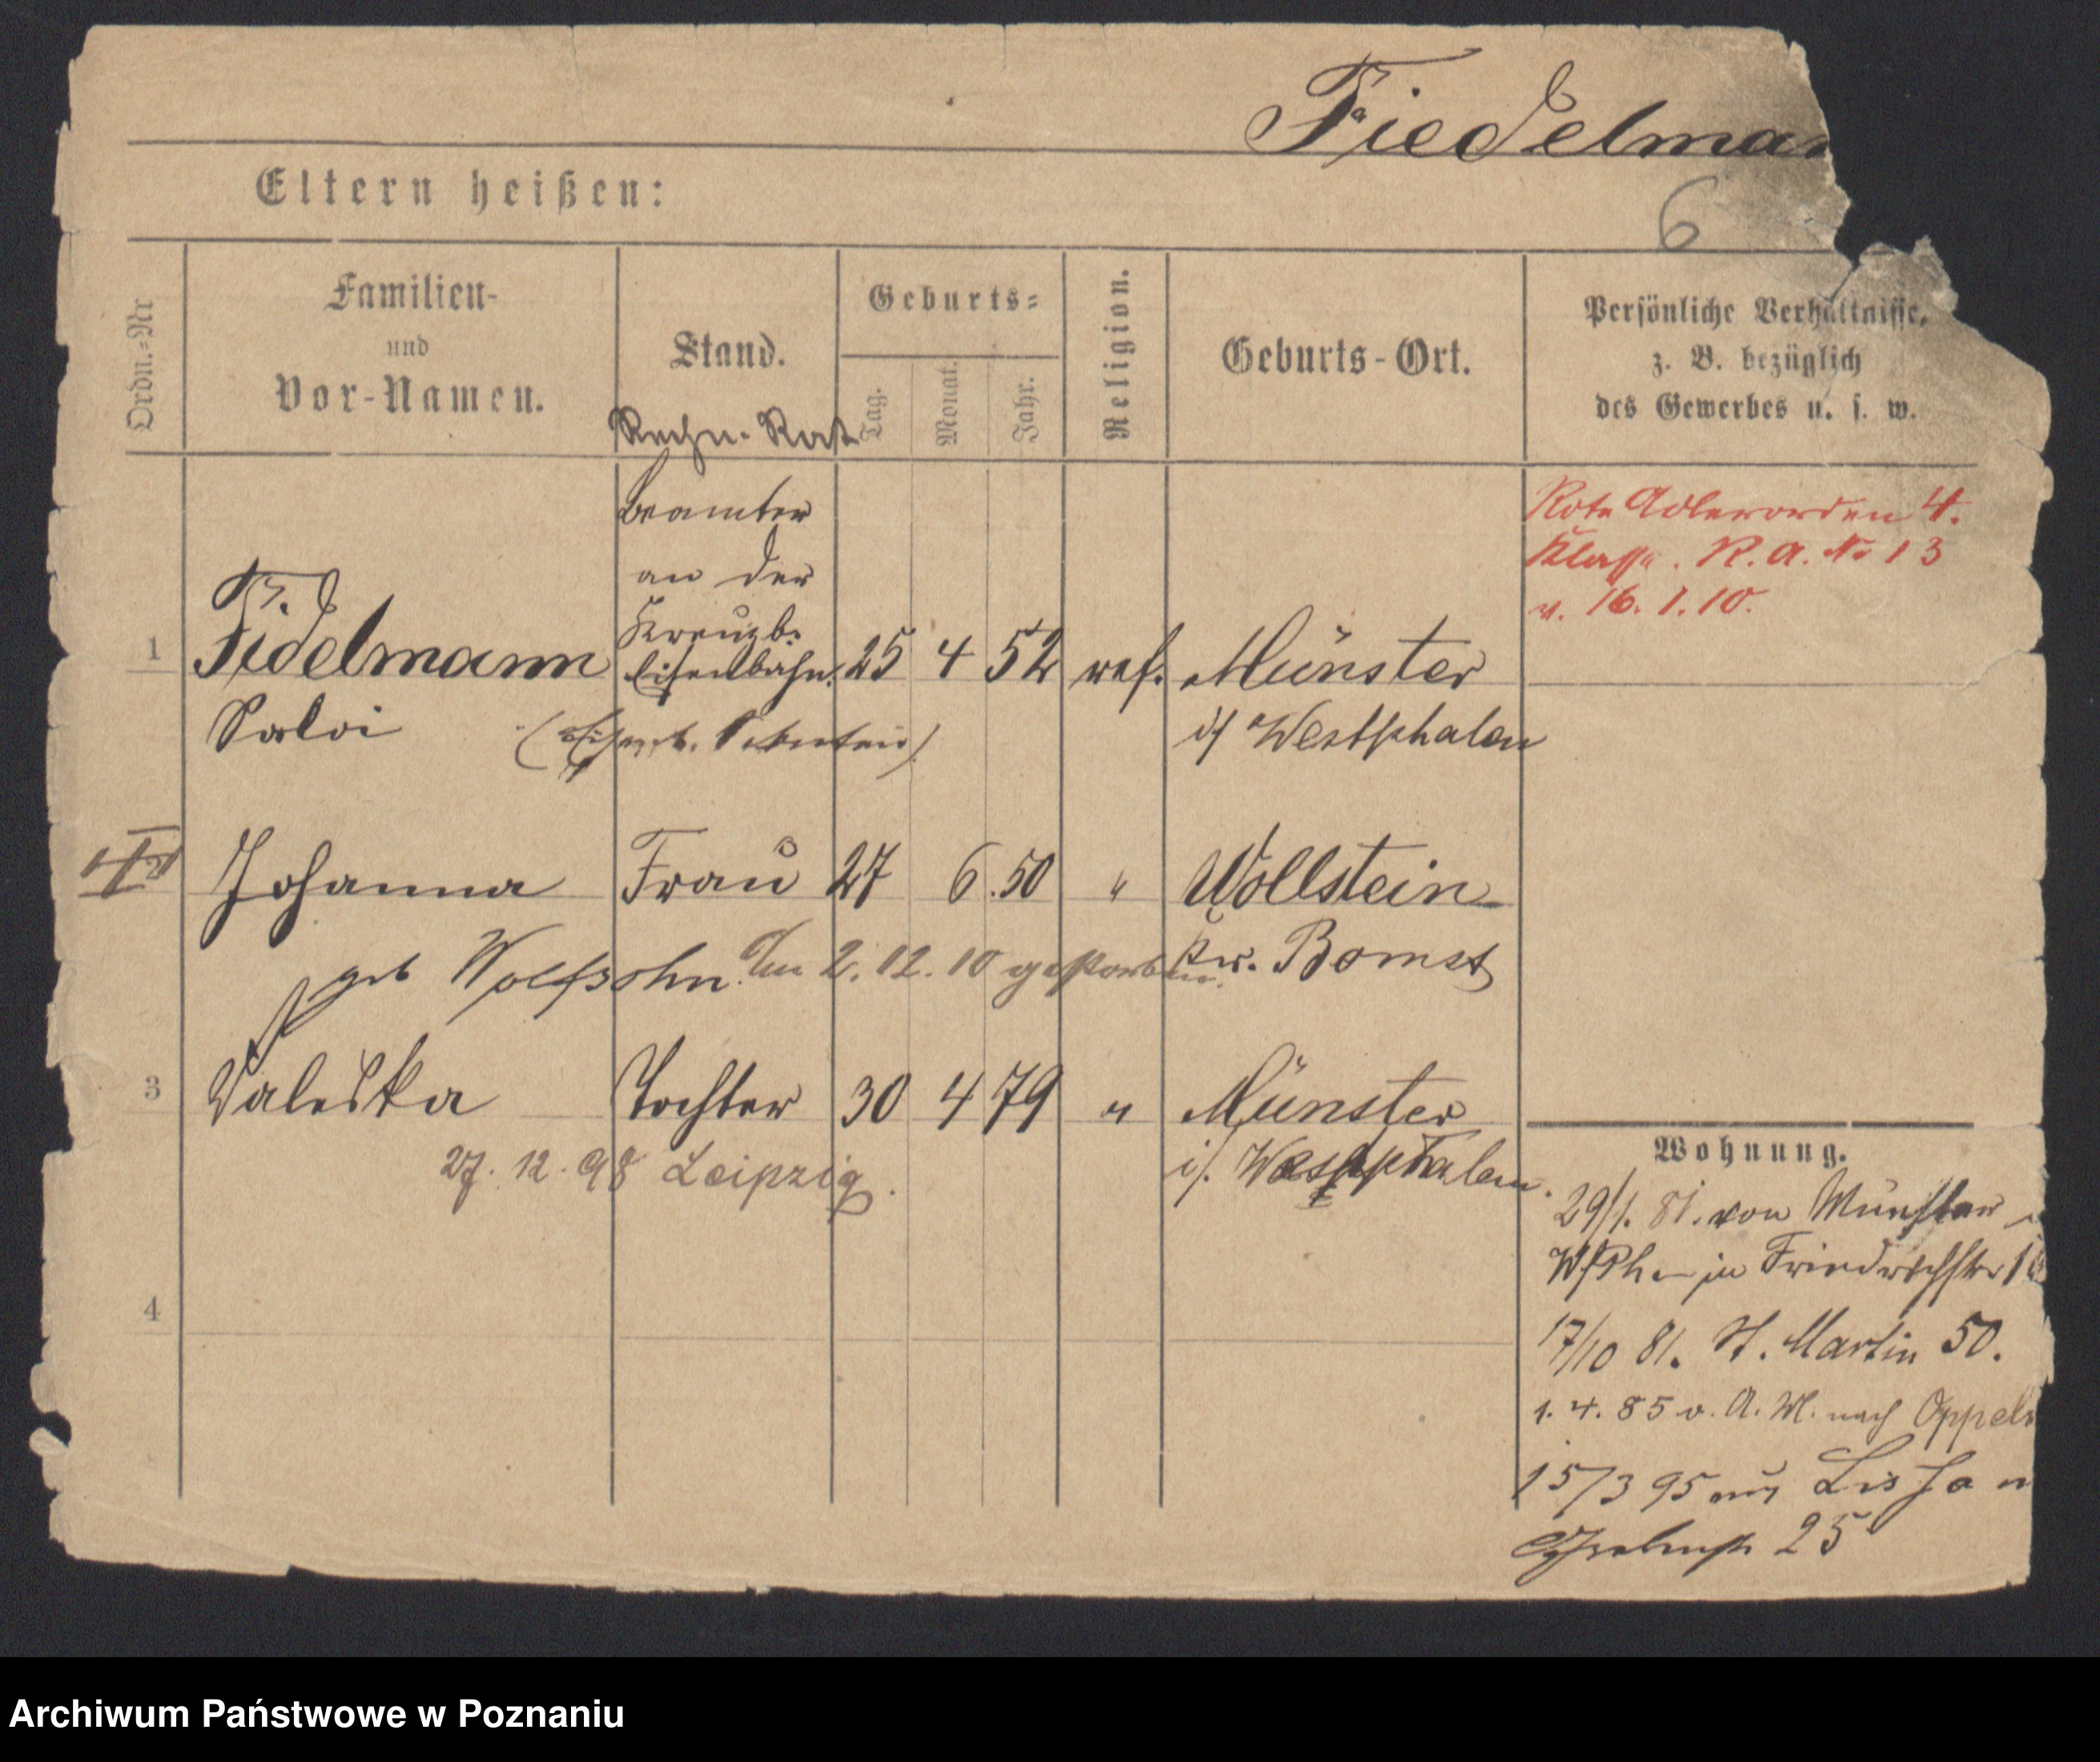 Fiedelman
6
Eltern heißen:
Ordn.=Nr
Familien-
und
Vor-Namen.
Stand.
Geburts=
Tag.
Monat.
Jahr.
Religion.
Geburts-Ort.
Persönliche Verhältnisse,
z. B. bezüglich
des Gewerbes u. s. w.
Rechn. Rat
Beamter
an der
Kreuzb.
Eisenbahn.
1 Fidelmann 25 4 52 ref. Münster
i/ Westphalen
Rote Adlerorden 4.
Klasse. R. A. No 13
v. 16. 1. 10.
Johanna Frau 27 6. 50 " Wollstein
geb Wolfsohn. Am 2. 12. 10 gestorben. Kr. Bomst
3 Valeska Tochter 30 4 79 " Münster
27. 12. 98 Leipzig. i/. Westphalen.
4
Wohnung.
29/1. 81. von Münster
W/Ph in Friedrichstr
17/10 81. St. Martin 50.
1. 4. 85 v. A. M. nach Oppeln
15/3 95 aus Lissa
25
Archiwum Państwowe w Poznaniu